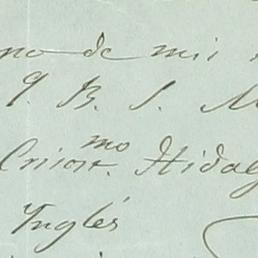 no de mis
q. B. S. M
Criort.mo Hidalg
Inglés